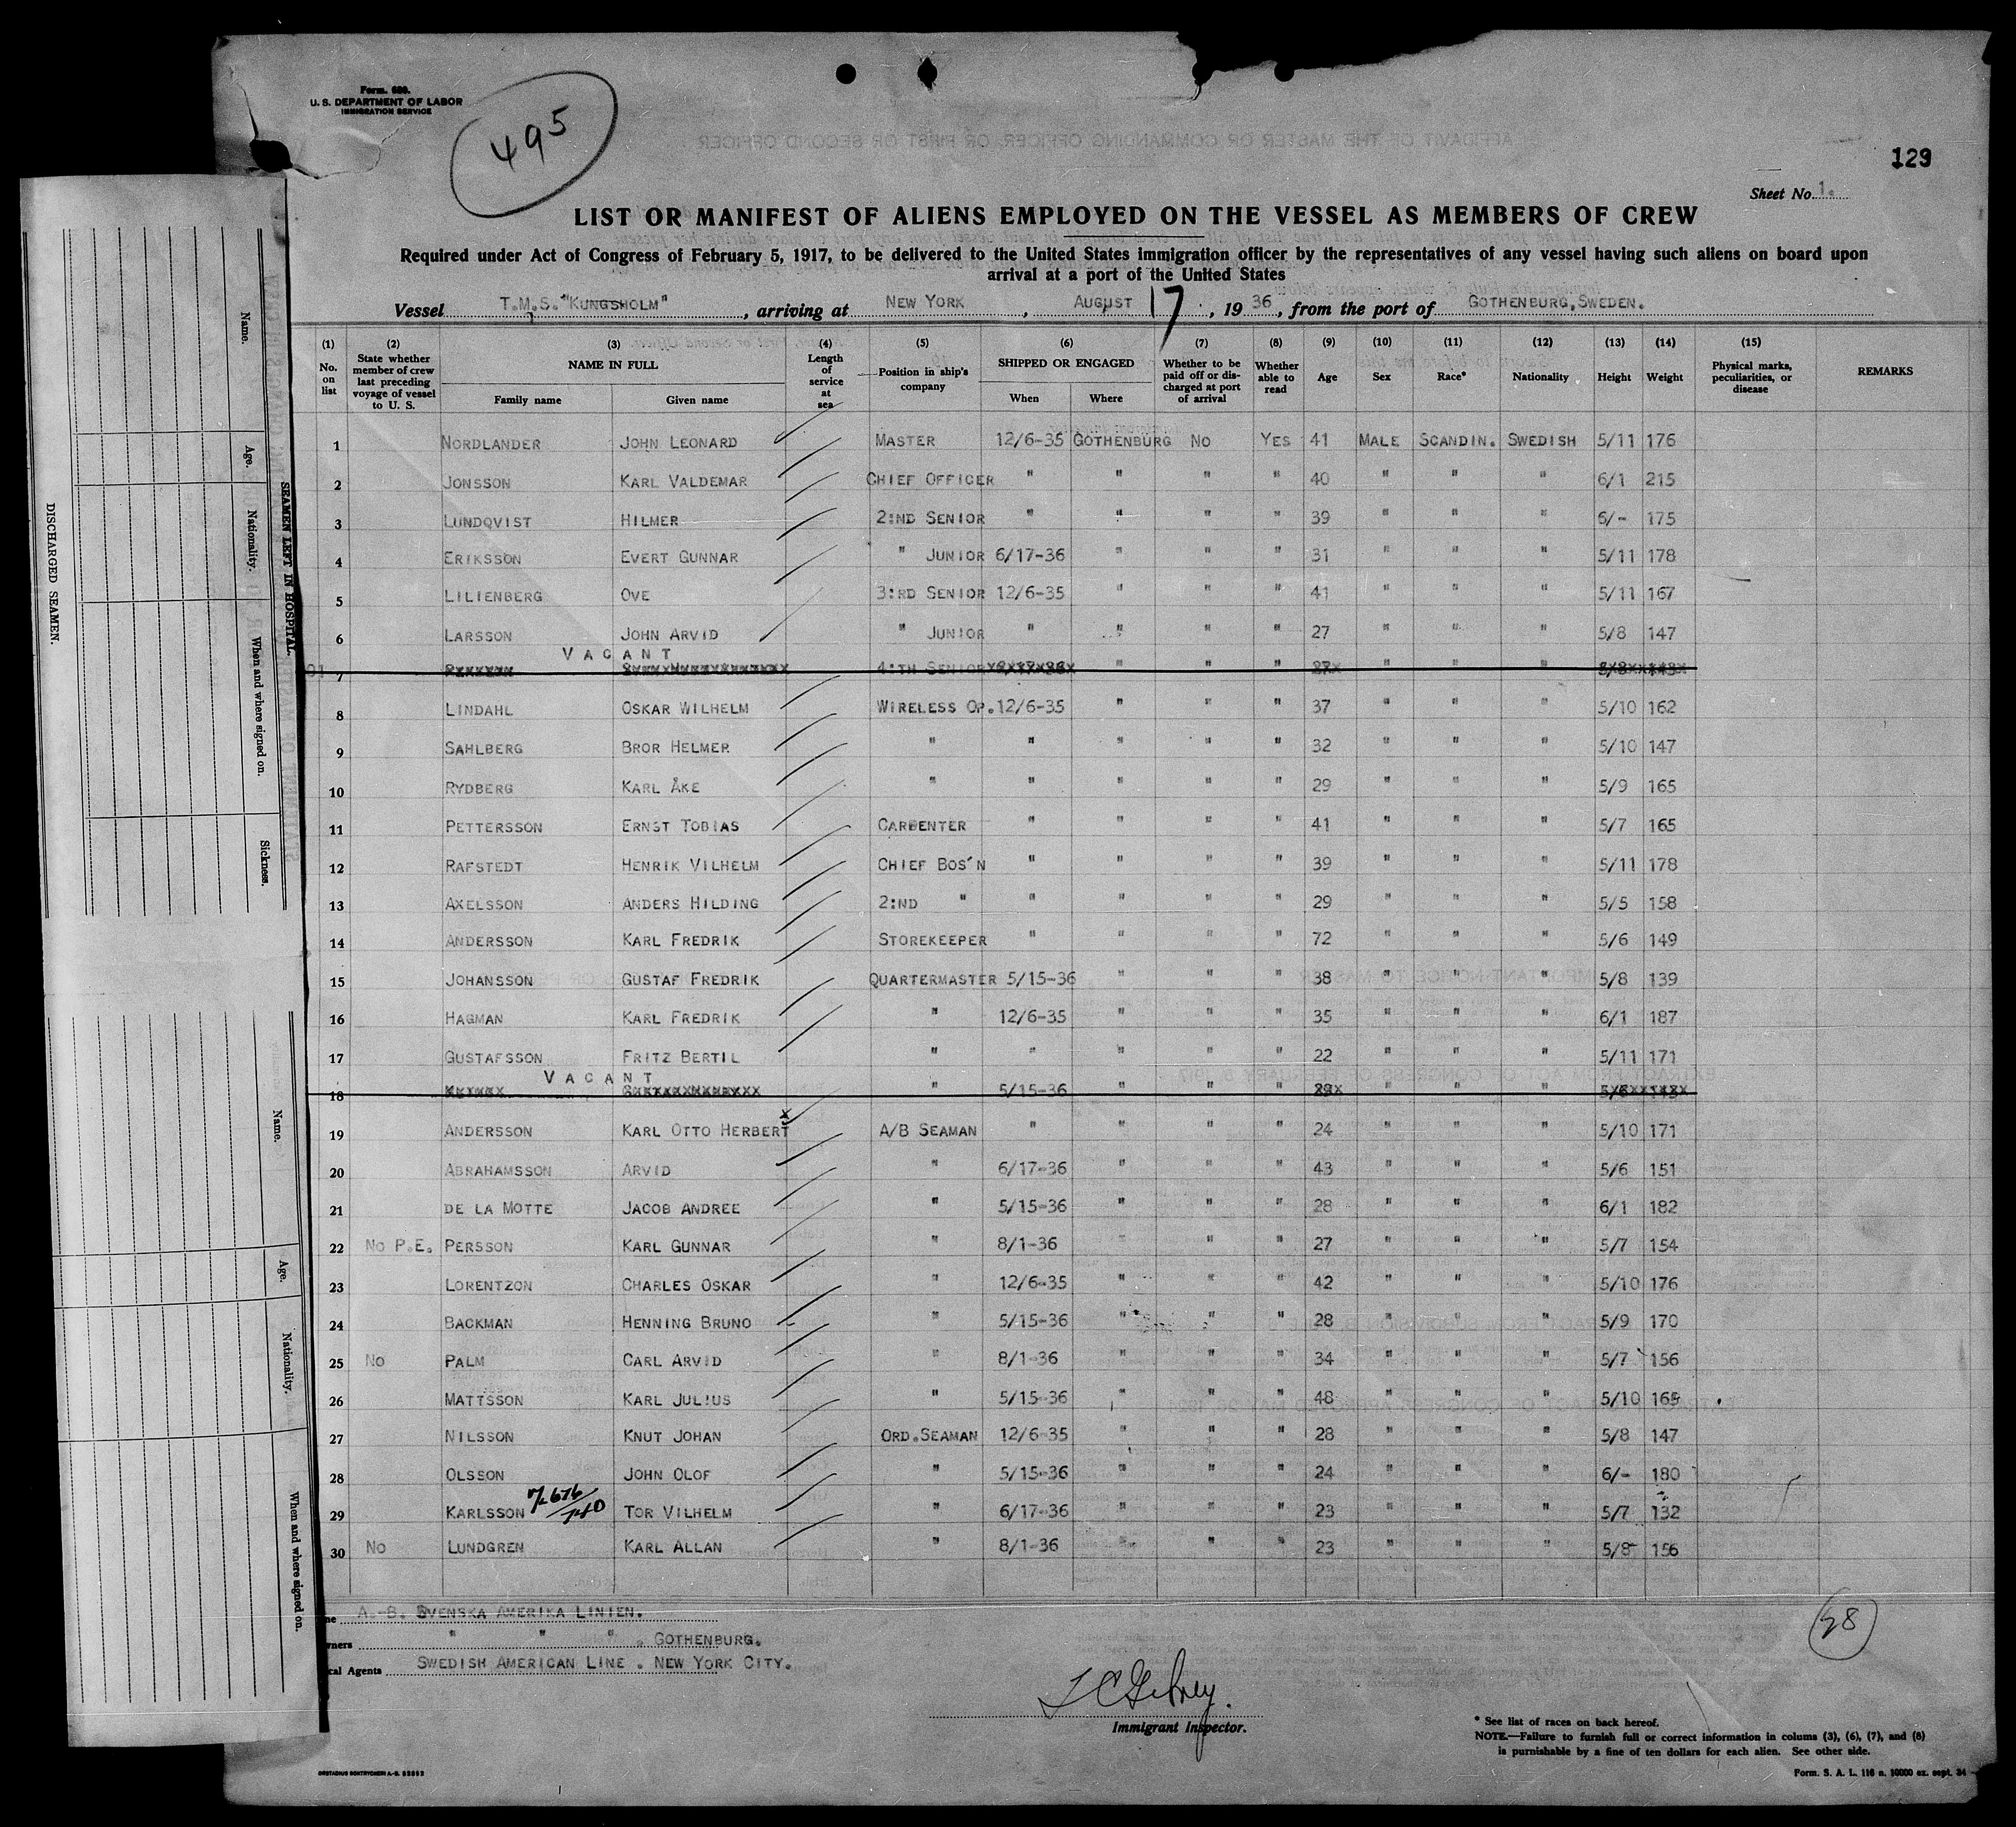 Form. 680.
U. S. DEPARTMENT OF LABOR
IMMIGRATION SERVICE
495
129
Sheet No. 1.
LIST OR MANIFEST OF ALIENS EMPLOYED ON THE VESSEL AS MEMBERS OF CREW
Required under Act of Congress of February 5, 1917, to be delivered to the United States immigration officer by the representatives of any vessel having such aliens on board upon
arrival at a port of the United States
Vessel T.M.S. "KUNGSHOLM", arriving at NEW YORK, AUGUST 17, 1936, from the port of GOTHENBURG, SWEDEN.
(1) No. on list (2) State whether member of crew last preceding voyage of vessel to U. S. (3) NAME IN FULL Family name Given name (4) Length of service at sea (5) Position in ship's company (6) SHIPPED OR ENGAGED When Where (7) Whether to be paid off or discharged at port of arrival (8) Whether able to read (9) Age (10) Sex (11) Race* (12) Nationality (13) Height (14) Weight (15) Physical marks, peculiarities, or disease REMARKS
1 NORDLANDER JOHN LEONARD MASTER 12/6-35 GOTHENBURG NO YES 41 MALE SCANDIN. SWEDISH 5/11 176
2 JONSSON KARL VALDEMAR CHIEF OFFICER " " " " 40 " " " 6/1 215
3 LUNDQVIST HILMER 2:ND SENIOR " " " " 39 " " " 6/- 175
4 ERIKSSON EVERT GUNNAR " JUNIOR 6/17-36 " " " 31 " " " 5/11 178
5 LILIENBERG OVE 3:RD SENIOR 12/6-35 " " " 41 " " " 5/11 167
6 LARSSON JOHN ARVID " JUNIOR " " " " 27 " " " 5/8 147
VACANT
7 4:TH SENIOR " " " " " "
8 LINDAHL OSKAR WILHELM WIRELESS OP. 12/6-35 " " " 37 " " " 5/10 162
9 SAHLBERG BROR HELMER " " " " " 32 " " " 5/10 147
10 RYDBERG KARL ÅKE " " " " " 29 " " " 5/9 165
11 PETTERSSON ERNST TOBIAS CARPENTER " " " " 41 " " " 5/7 165
12 RAFSTEDT HENRIK VILHELM CHIEF BOS'N " " " " 39 " " " 5/11 178
13 AXELSSON ANDERS HILDING 2:ND " " " " " 29 " " " 5/5 158
14 ANDERSSON KARL FREDRIK STOREKEEPER " " " " 72 " " " 5/6 149
15 JOHANSSON GUSTAF FREDRIK QUARTERMASTER 5/15-36 " " " 38 " " " 5/8 139
16 HAGMAN KARL FREDRIK " 12/6-35 " " " 35 " " " 6/1 187
17 GUSTAFSSON FRITZ BERTIL " " " " " 22 " " " 5/11 171
VACANT
18 " 5/15-36 " " " " " "
19 ANDERSSON KARL OTTO HERBERT A/B SEAMAN " " " " 24 " " " 5/10 171
20 ABRAHAMSSON ARVID " 6/17-36 " " " 43 " " " 5/6 151
21 DE LA MOTTE JACOB ANDREE " 5/15-36 " " " 28 " " " 6/1 182
22 NO P.E. PERSSON KARL GUNNAR " 8/1-36 " " " 27 " " " 5/7 154
23 LORENTZON CHARLES OSKAR " 12/6-35 " " " 42 " " " 5/10 176
24 BACKMAN HENNING BRUNO " 5/15-36 " " " 28 " " " 5/9 170
25 NO PALM CARL ARVID " 8/1-36 " " " 34 " " " 5/7 156
26 MATTSSON KARL JULIUS " 5/15-36 " " " 48 " " " 5/10 165
27 NILSSON KNUT JOHAN ORD. SEAMAN 12/6-35 " " " 28 " " " 5/8 147
28 OLSSON JOHN OLOF " 5/15-36 " " " 24 " " " 6/- 180
29 KARLSSON TOR VILHELM " 6/17-36 " " " 23 " " " 5/7 132
30 NO LUNDGREN KARL ALLAN " 8/1-36 " " " 23 " " " 5/8 156
A.-B. SVENSKA AMERIKA LINIEN.
" " " . GOTHENBURG.
Agents SWEDISH AMERICAN LINE . NEW YORK CITY.
28
Immigrant Inspector.
* See list of races on back hereof.
NOTE.—Failure to furnish full or correct information in colums (3), (6), (7), and (8)
is purnishable by a fine of ten dollars for each alien. See other side.
Form. S. A. L. 116 n. 10000 ex. sept. 34
DISCHARGED SEAMEN.
SEAMEN LEFT IN HOSPITAL.
Name. Age. Nationality. When and where signed on. Sickness.
Name. Age. Nationality. When and where signed on.